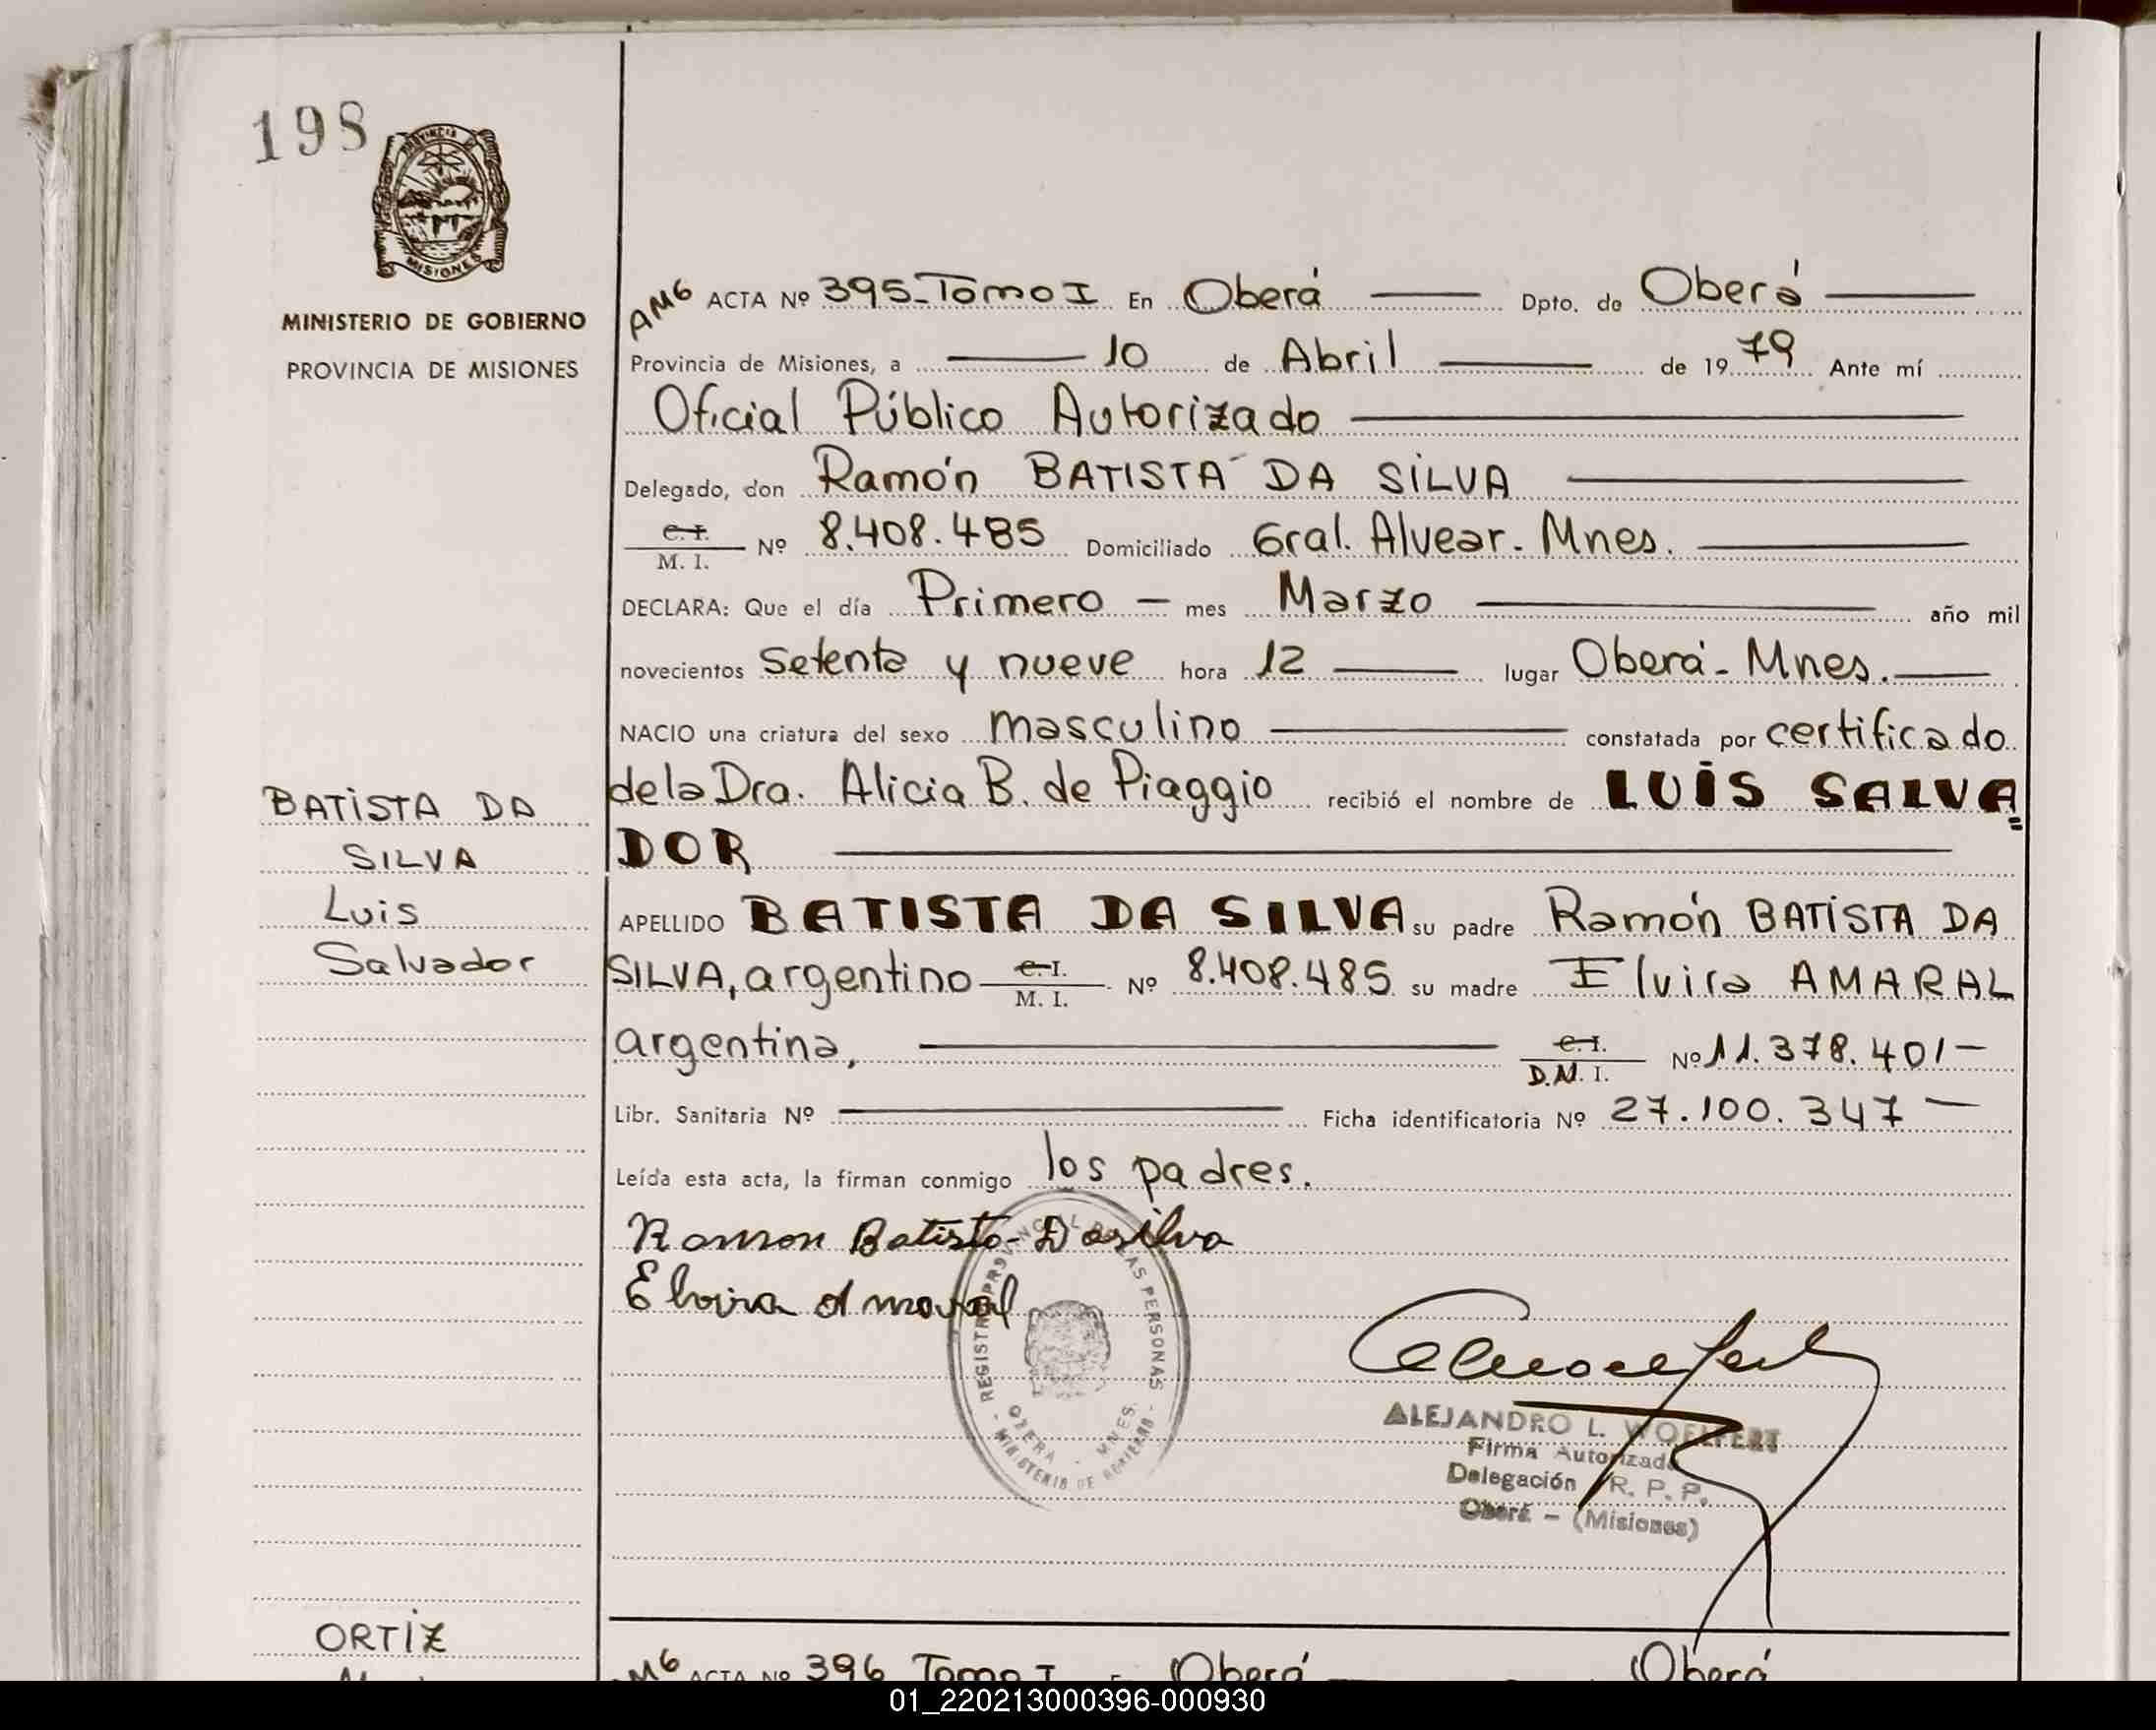 198
PROVINCIA
MISIONES
MINISTERIO DE GOBIERNO
PROVINCIA DE MISIONES
AMG ACTA Nº 395-Tomo I En Oberá Dpto. de Oberá
Provincia de Misiones, a 10 de Abril de 1979 Ante mí
Oficial Público Autorizado
Delegado, don Ramón BATISTA DA SILVA
C.I. / M. I. Nº 8.408.485 Domiciliado Gral. Alvear. Mnes.
DECLARA: Que el día Primero — mes Marzo año mil
novecientos setenta y nueve hora 12 lugar Oberá - Mnes.
NACIO una criatura del sexo masculino constatada por certificado
de la Dra. Alicia B. de Piaggio recibió el nombre de LUIS SALVA=
DOR
APELLIDO BATISTA DA SILVA su padre Ramón BATISTA DA
SILVA, argentino C.I. / M. I. Nº 8.408.485 su madre Elvira AMARAL
argentina, C.I. / D.N. I. Nº 11.378.401-
Libr. Sanitaria Nº Ficha identificatoria Nº 27.100.347 —
Leída esta acta, la firman conmigo los padres.
BATISTA DA
SILVA
Luis
Salvador
Ramon Batista Dasilva
Elvira Amaral
REGISTRO PROVINCIAL DE LAS PERSONAS
OBERA - MNES.
- MINISTERIO DE GOBIERNO -
ALEJANDRO L. WOELFERT
Firma Autorizada
Delegación R. P. P.
Oberá - (Misiones)
ORTIZ
AMG ACTA Nº 396 Tomo I Oberá Oberá
01_220213000396-000930